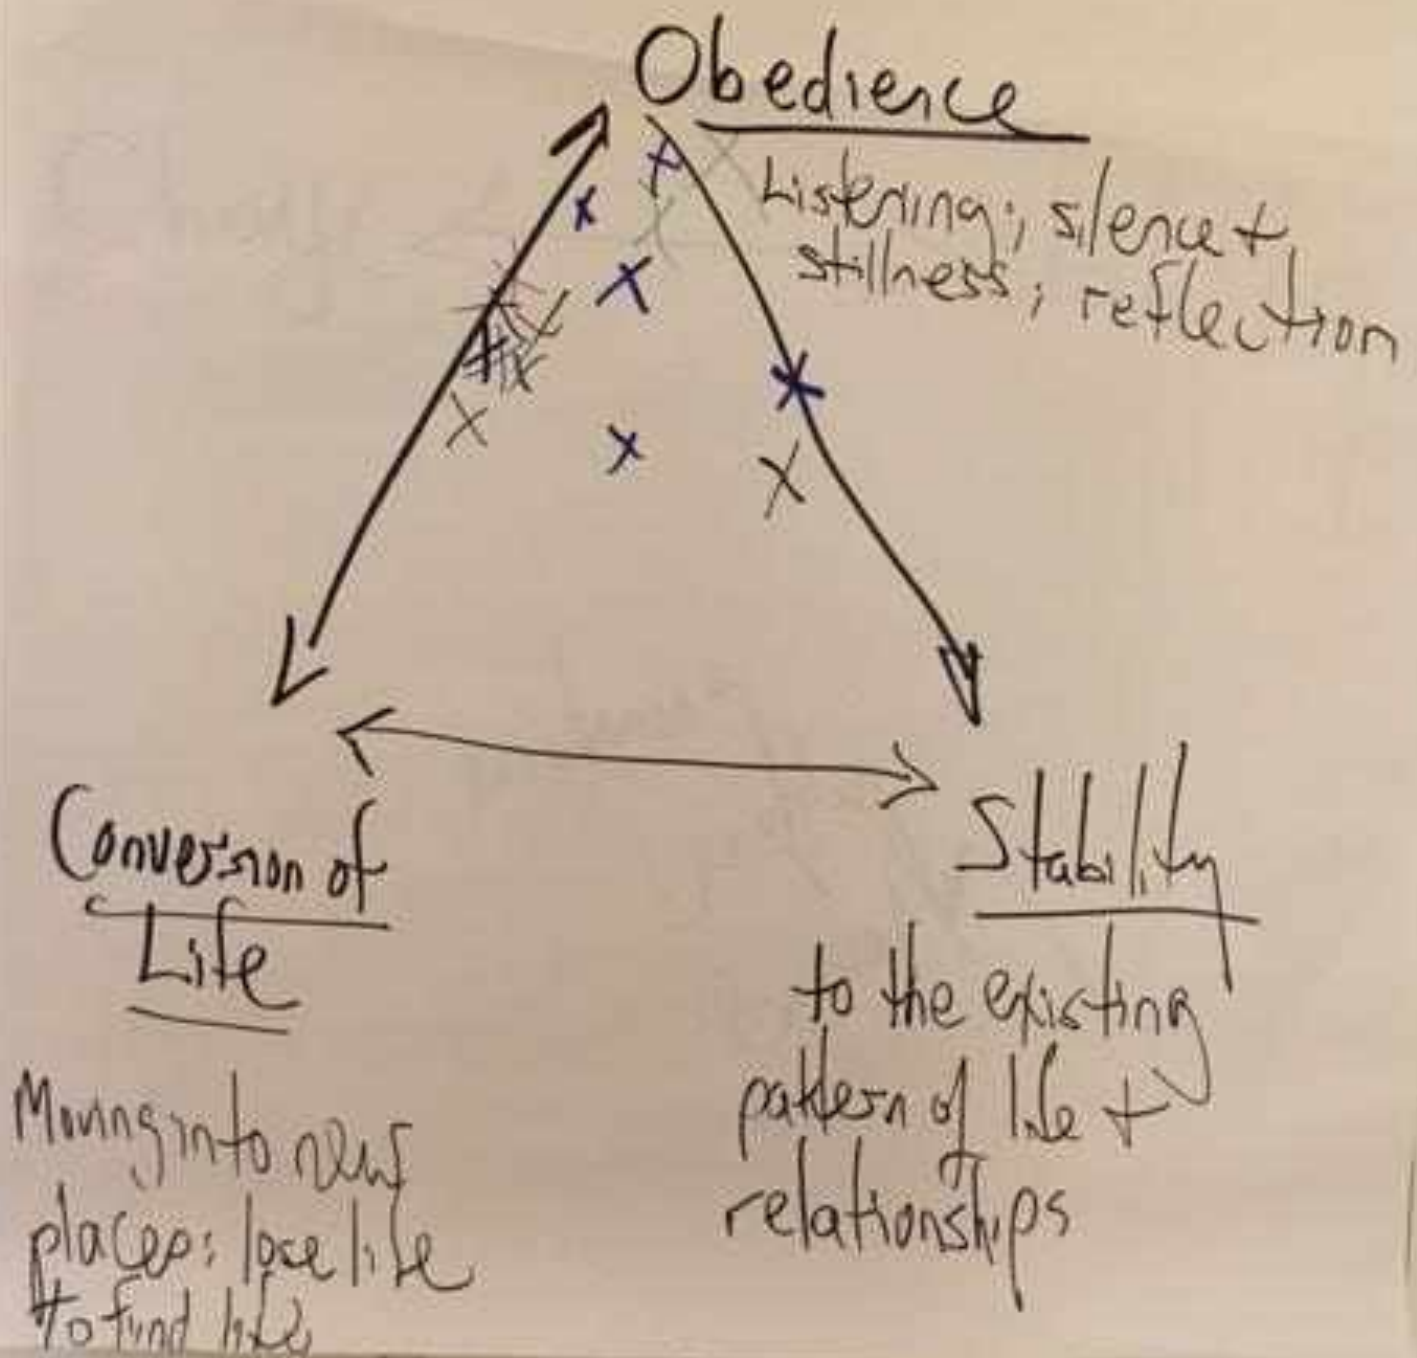 Obedience
Listening; silence +
stillness; reflection
Conversion of
Life
Moving into new
places: lose life
to find life
Stability
to the existing
pattern of life +
relationships